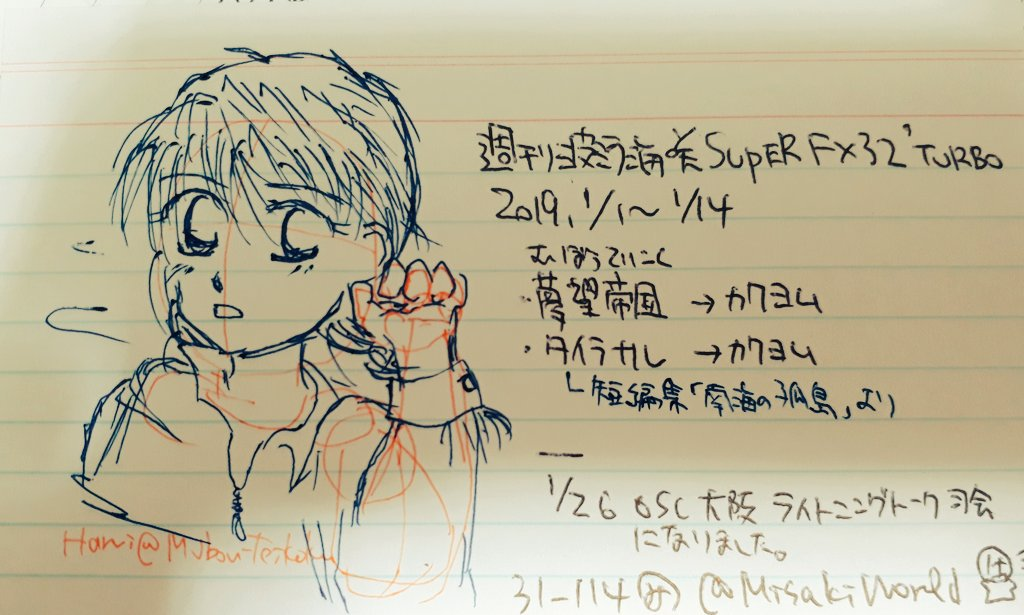 週刊 SUPER FX32' TURBO
2019. 1/1〜1/14
むぼうていこく
・夢望帝国 → カクヨム
・タイラカし → カクヨム
└短編集「南海の孤島」より
1/26 OSC大阪 ライトニングトーク司会
になりました。
Hami@Mubou-Teikoku
31-114 @MisakiWorld